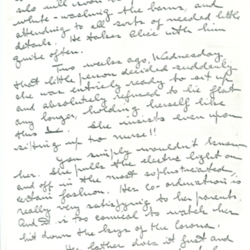 who will soon be
white-washing the barns, and
attending to all sorts of needed little
details. He takes Alice with him
quite often.
Two weeks ago, Wednesday,
that little person decided suddenly
she was entirely ready to sit up
and absolutely refused to lie flat
any longer, holding herself like
this. She insists even upon
sitting up to nurse!!
You simply wouldn't know
her. She pulls the electric light on
and off in the most sophisticated,
certain fashion. Her co-ordination is
really very satisfying to her parents.
And it is too comical to watch her
hit down the keys of the Corona.
Her father does it just and